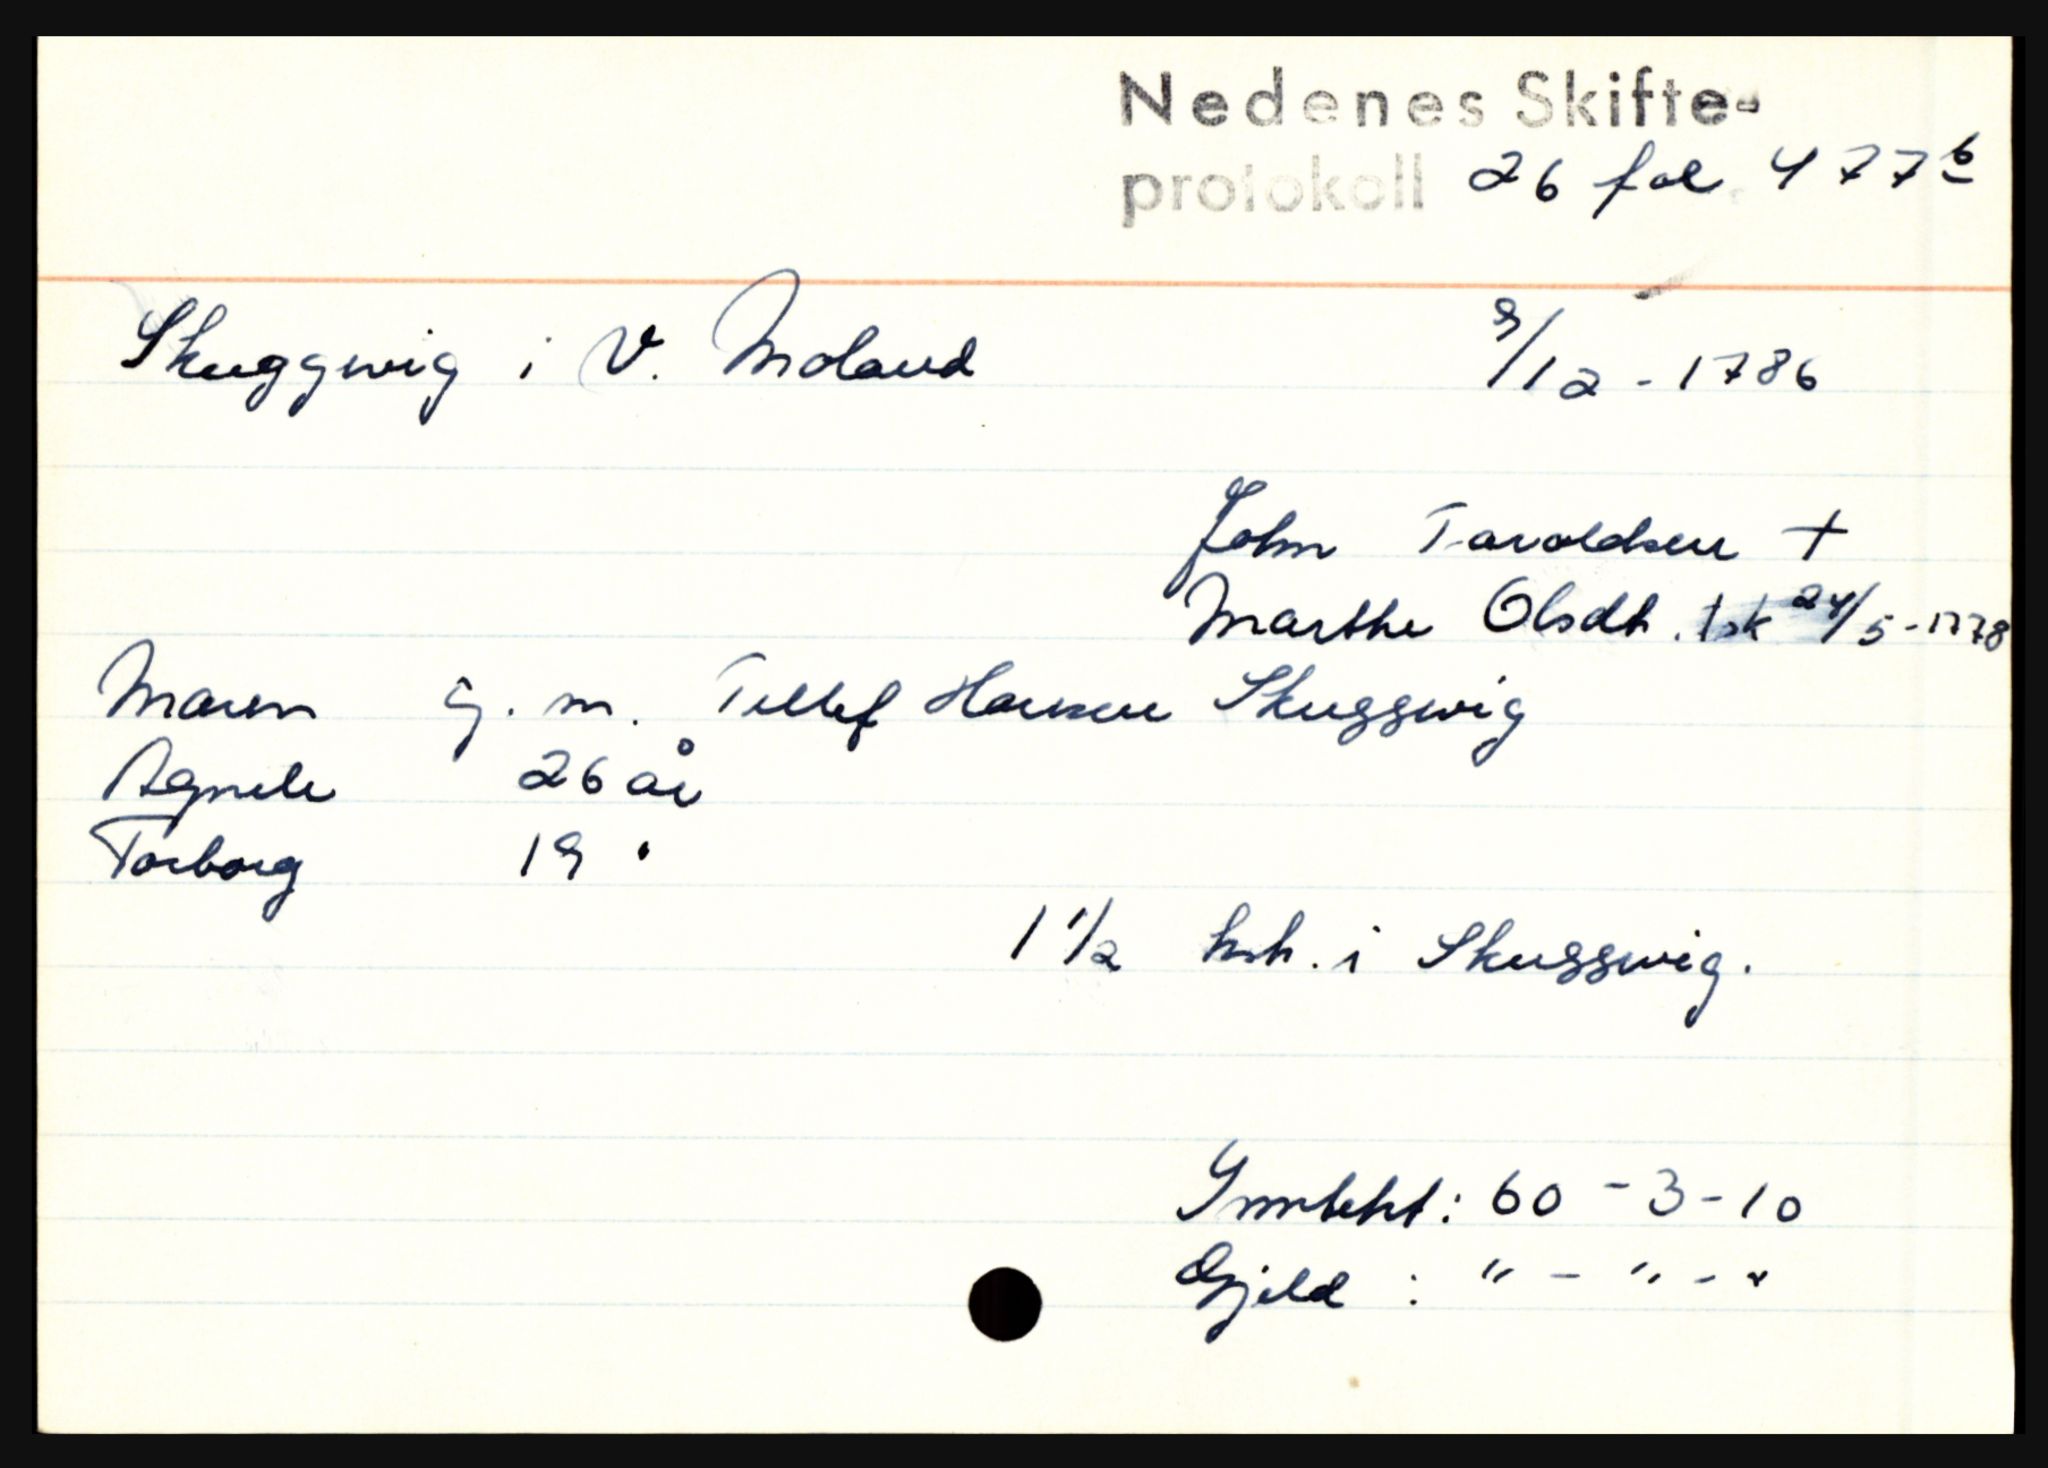 Nedenes Skifte-
protokoll 26 fol 477 b
Skuggwig i V. Moland 9/12 - 1786
John Taraldsen +
Marthe Olsdt. 24/5 - 1778
Maren g. m. Tellef Hansen Skuggwig
Agnete 26 år
Torborg 19 "
1 1/2 hsh. i Skuggwig.
Inntekt: 60 - 3 - 10
Gjeld : " - " - "